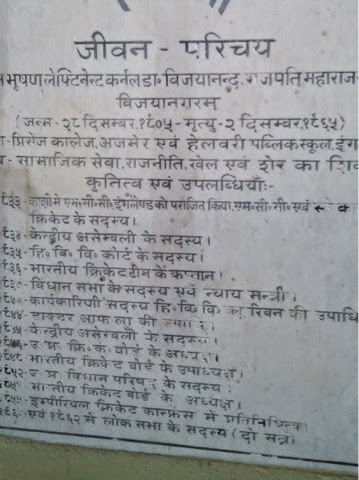 जीवन - परिचय
भूषण लेफ्टिनेन्ट कर्नल डा० विजयानन्द गजपति महाराज
विजयानगरम्
(जन्म - २८ दिसम्बर, १९०५ - मृत्यु - २ दिसम्बर, १९६५)
प्रिंसेज कालेज, अजमेर एवं हैलवरी पब्लिक स्कूल, इंग
सामाजिक सेवा, राजनीति, खेल एवं शेर का शि
कृतित्व एवं उपलब्धियाँ:-
९३३- काशी में एम० सी० सी० इंग्लैण्ड को पराजित किया, एम० सी० सी० एवं
क्रिकेट के सदस्य।
९३४- केन्द्रीय असेम्बली के सदस्य।
९३५- हि० बि० वि० कोर्ट के सदस्य।
९३६- भारतीय क्रिकेट टीम के कप्तान।
९३७- विधान सभा के सदस्य एवं न्याय मन्त्री।
कार्यकारिणी सदस्य हि० वि० वि० की उपाधि
डाक्टर आफ ला की
केन्द्रीय असेम्बली के सदस्य।
उ० प्र० क्रि० बोर्ड के अध्यक्ष।
भारतीय क्रिकेट बोर्ड के उपाध्यक्ष।
विधान परिषद के सदस्य।
भारतीय क्रिकेट बोर्ड के अध्यक्ष।
इम्पीरियल क्रिकेट कान्फ्रेंस में प्रतिनिधित्व।
एवं १९६२ में लोक सभा के सदस्य (दो सत्र)